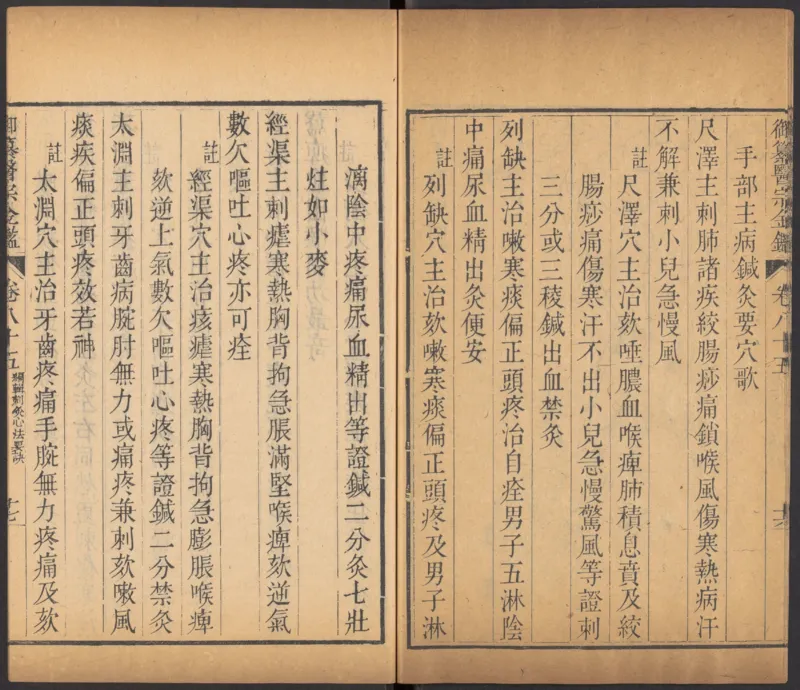 御纂醫宗金鑑 卷八十五
手部主病鍼灸要穴歌
尺澤主刺肺諸疾絞腸痧痛鎖喉風傷寒熱病汗
不解兼刺小兒急慢風
註 尺澤穴主治欬唾膿血喉痺肺積息賁及絞
腸痧痛傷寒汗不出小兒急慢驚風等證刺
三分或三稜鍼出血禁灸
列缺主治嗽寒痰偏正頭疼治自痊男子五淋陰
中痛尿血精出灸便安
註 列缺穴主治欬嗽寒痰偏正頭疼及男子淋
漓陰中疼痛尿血精出等證鍼二分灸七壯
炷如小麥
經渠主刺瘧寒熱胸背拘急脹滿堅喉痺欬逆氣
數欠嘔吐心疼亦可痊
註 經渠穴主治痎瘧寒熱胸背拘急膨脹喉痺
欬逆上氣數欠嘔吐心疼等證鍼二分禁灸
太淵主刺牙齒病腕肘無力或痛疼兼刺欬嗽風
痰疾偏正頭疼效若神
註 太淵穴主治牙齒疼痛手腕無力疼痛及欬
御纂醫宗金鑑 卷八十五 編輯刺灸心法要訣 十七